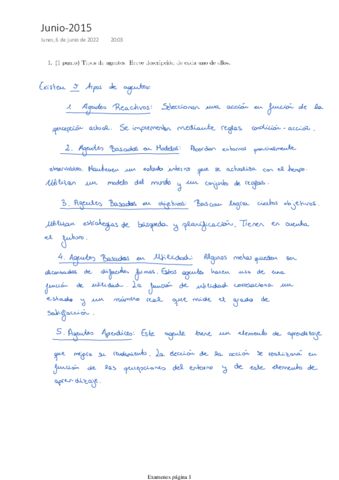 Junio-2015
lunes, 6 de junio de 2022 20:03
1. (1 punto) Tipos de agentes. Breve descripción de cada uno de ellos.
Existen 5 tipos de agentes:
1. Agentes Reactivos: Seleccionan una acción en función de la
percepción actual. Se implementan mediante reglas condición-acción.
2. Agentes Basados en Modelos: Abordan entornos parcialmente
observables. Mantienen un estado interno que se actualiza con el tiempo.
Utilizan un modelo del mundo y un conjunto de reglas.
3. Agentes Basados en objetivos: Buscan lograr ciertos objetivos.
Utilizan estrategias de búsqueda y planificación. Tienen en cuenta
el futuro.
4. Agentes Basados en Utilidad: Algunas metas pueden ser
alcanzadas de diferentes formas. Estos agentes hacen uso de una
función de utilidad. La función de utilidad correlaciona un
estado y un número real que mide el grado de
satisfacción.
5. Agentes Aprendices: Este agente tiene un elemento de aprendizaje
que mejora su rendimiento. La elección de la acción se realizará en
función de las percepciones del entorno y de este elemento de
aprendizaje.
Examenes página 1